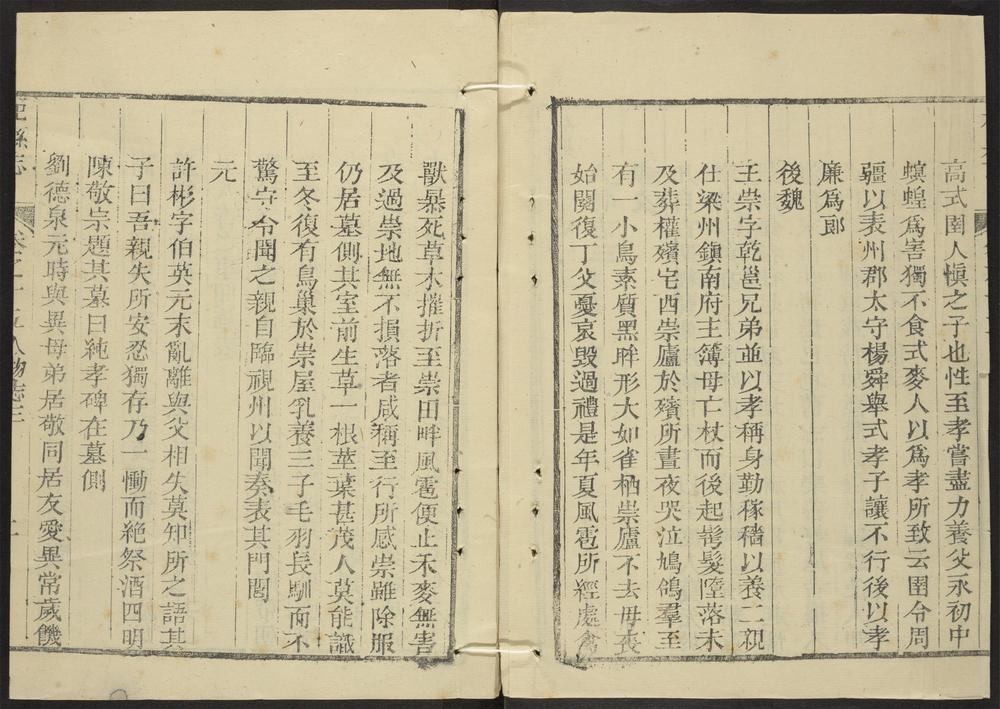 高式圉人愼之子也性至孝嘗盡力養父永初中
螟蝗爲害獨不食式麥人以爲孝所致云圉令周
彊以表州郡太守楊舜舉式孝子讓不行後以孝
廉爲郎
後魏
王崇字乾邕兄弟並以孝稱身勤稼穡以養二親
仕梁州鎭南府主簿母亡杖而後起髩髮墮落未
及葬權殯宅西崇廬於殯所晝夜哭泣鳩鴿羣至
有一小鳥素質黑眸形大如雀栖崇廬不去毋喪
始闋復丁父憂哀毀過禮是年夏風雹所經處禽
獸暴死草木摧折至崇田畔風雹便止禾麥無害
及過崇地無不損落者咸稱至行所感崇雖除服
仍居墓側其室前生草一根莖葉甚茂人莫能識
至冬復有鳥巢於崇屋乳養三子毛羽長馴而不
驚守令聞之親自臨視州以聞奏表其門閭
元
許彬字伯英元末亂離與父相失莫知所之語其
子曰吾親失所安忍獨存乃一慟而絶祭酒四明
陳敬宗題其墓曰純孝碑在墓側
劉德泉元時與異母弟居敬同居友愛異常歲饑
縣志
人物志三